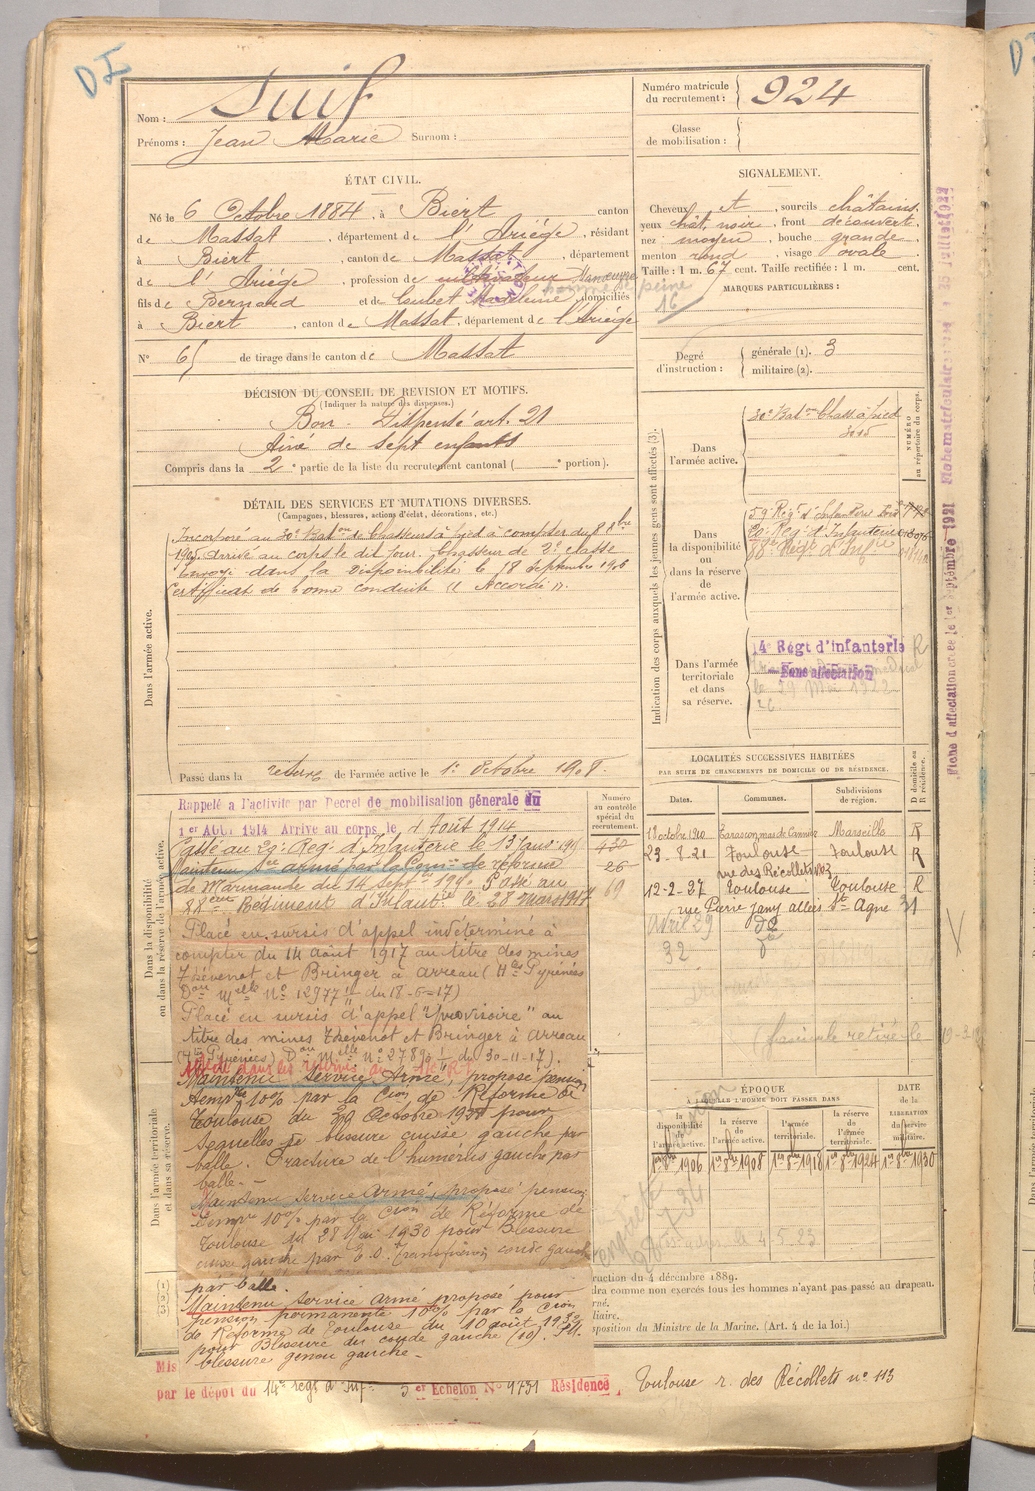 DI
Nom : Suif
Prénoms : Jean Marie Surnom :
Numéro matricule du recrutement : 924
Classe de mobilisation :
ÉTAT CIVIL.
Né le 6 Octobre 1884, à Biert canton
de Massat, département de l'Ariège, résidant
à Biert, canton de Massat, département
de l'Ariège, profession de cultivateur
fils de Bernard et de Coubet Madeleine, domiciliés
à Biert, canton de Massat, département de l'Ariège
N° 65 de tirage dans le canton de Massat
SIGNALEMENT.
Cheveux et, sourcils châtains
yeux chât. noir, front découvert
nez moyen, bouche grande
menton rond, visage ovale
Taille : 1 m. 67 cent. Taille rectifiée : 1 m. cent.
MARQUES PARTICULIÈRES :
Degré d'instruction : générale (1). 3
militaire (2).
DÉCISION DU CONSEIL DE REVISION ET MOTIFS.
(Indiquer la nature des dispenses.)
Bon. Dispensé art. 21
Aîné de sept enfants
Compris dans la 2e partie de la liste du recrutement cantonal ( e portion).
DÉTAIL DES SERVICES ET MUTATIONS DIVERSES.
(Campagnes, blessures, actions d'éclat, décorations, etc.)
Dans l'armée active.
Incorporé au 30e Baton de Chasseurs à pied à compter du 8 8bre
1905 arrivé au corps le dit jour. Chasseur de 2e classe
Envoyé dans la disponibilité le 18 Septembre 1906
Certificat de bonne conduite "Accordé".
Passé dans la réserve de l'armée active le 1er Octobre 1908.
Indication des corps auxquels les jeunes gens sont affectés (3).
NUMÉRO au répertoire du corps.
Dans l'armée active.
30e Baton Chass à pied
3015
Dans la disponibilité ou dans la réserve de l'armée active.
59e Régt d'Infanterie
Régt d'Infanterie
88e Régt d'Infie
Dans l'armée territoriale et dans sa réserve.
14e Régt d'Infanterie R
Sans affectation
le 29 Mai 1922
Fiche d'affectation créée le 1er Septembre 1921
Dans la disponibilité ou dans la réserve de l'armée active.
Rappelé à l'activité par Decret de mobilisation générale du
1er AOUT 1914 Arrivé au corps le 4 Août 1914
Passé au Régt d'Infanterie le 13
Maintenu Sce armé par la Comon de réforme
de Marmande du 14 septbre Passé au
88ème Régiment d'Infantie le 28 mars 1917
Numéro au contrôle spécial du recrutement.
430
26
69
Placé en sursis d'appel indéterminé à
compter du 14 août 1917 au titre des mines
Thévenot et Bringer à Arreau (Htes Pyrénées
Don Melle No 12977 du 18-6-17)
Placé en sursis d'appel "provisoire" au
titre des mines Thévenot et Bringer à Arreau
(Htes Pyrénées) Don Melle No 27890 du 30-11-17).
Maintenu Service Armé, proposé pension
tempre 10% par la Cion de Réforme de
Toulouse du 29 Octobre pour
sequelles de blessure cuisse gauche par
balle. Fracture de l'humerus gauche par
balle.
Maintenu Service Armé, proposé pension
tempre 10% par la Cion de Réforme de
Toulouse du 28 Mai 1930 pour blessure
cuisse gauche par E.O. coude gauche
par balle.
Maintenu service armé proposé pour
pension permanente 10% par la Cion
de Réforme de Toulouse du 10 août 1932
pour Blessure du coude gauche (10).
blessure genou gauche.
Dans l'armée territoriale et dans sa réserve.
LOCALITÉS SUCCESSIVES HABITÉES
PAR SUITE DE CHANGEMENTS DE DOMICILE OU DE RÉSIDENCE.
D domicile ou R résidence.
Dates. Communes. Subdivisions de région.
octobre 1910 Tarascon Marseille R
23-8-21 Toulouse Toulouse R
rue des Récollets 113
12-2-27 Toulouse Toulouse R
rue Pierre allées St Agne 31
Avril 29 do
32 do
(fascicule retiré le
ÉPOQUE
À LAQUELLE L'HOMME DOIT PASSER DANS
la disponibilité de l'armée active. la réserve de l'armée active. l'armée territoriale. la réserve de l'armée territoriale.
DATE de la LIBÉRATION du service militaire.
1er 8bre 1906 1er 8bre 1908 1er 8bre 1918 1er 8bre 1924 1er 8bre 1930
le 4 5 23
(1)
(2)
(3)
ruction du 4 décembre 1889.
dra comme non exercés tous les hommes n'ayant pas passé au drapeau.
rné.
liaire.
sposition du Ministre de la Marine. (Art. 4 de la loi.)
Mis
par le dépôt du 14e regt d'Inf. 3 er Echelon N° 9731 Résidence
Toulouse r. des Récollets n° 113